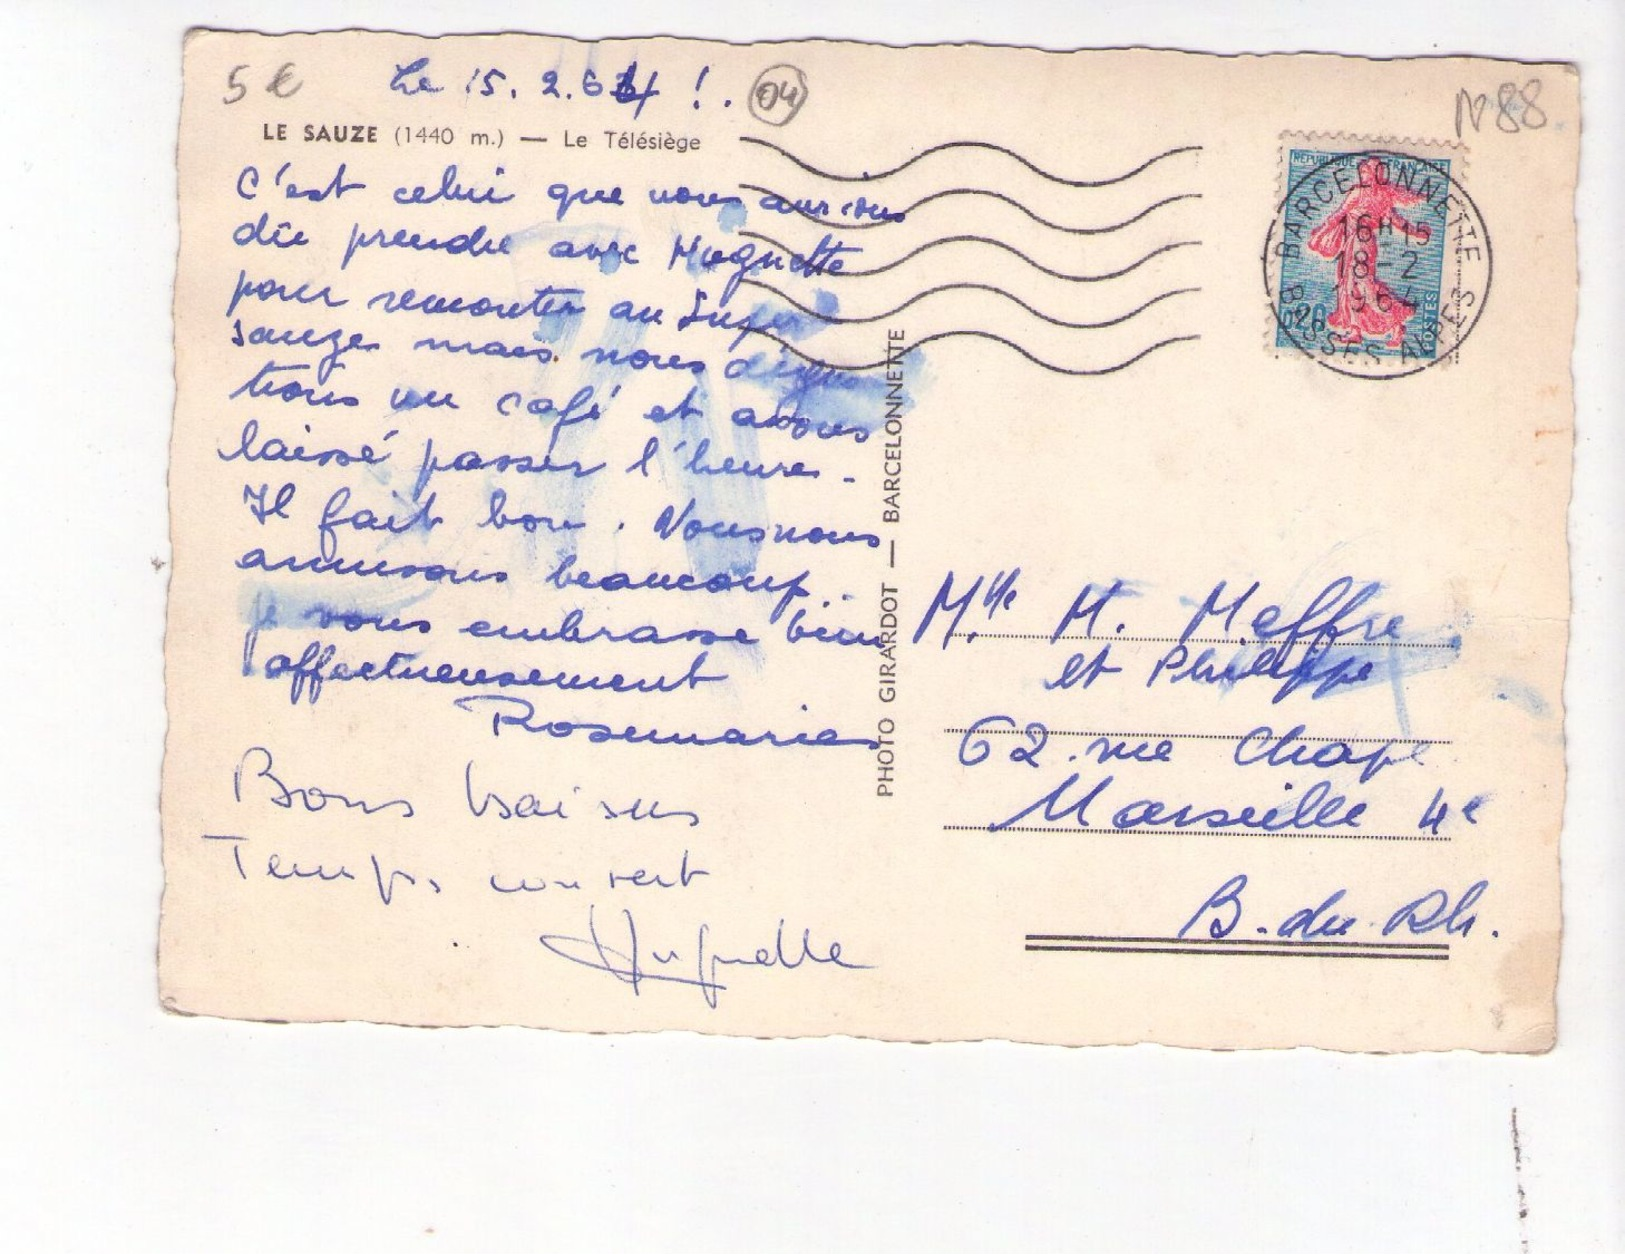 5 €
Le 15. 2. 64 ! .
04
N 88
LE SAUZE (1440 m.) — Le Télésiège
C'est celui que nous aurions
dû prendre avec Huguette
pour remonter au Super
sauze mais nous dégus
tions un café et avons
laissé passer l'heure .
Il fait bon . Nous nous
amusons beaucoup ..
je vous embrasse bien
affectueusement
Rosemarie
Bons baisers
Temps couvert
Huguette
PHOTO GIRARDOT — BARCELONNETTE
RÉPUBLIQUE FRANÇAISE
0,20
POSTES
BARCELONNETTE
16H15
18-2
1964
BASSES ALPES
Mlle M. Meffre
et Philippe
62 . rue Chape
Marseille 4e
B. du Rh.